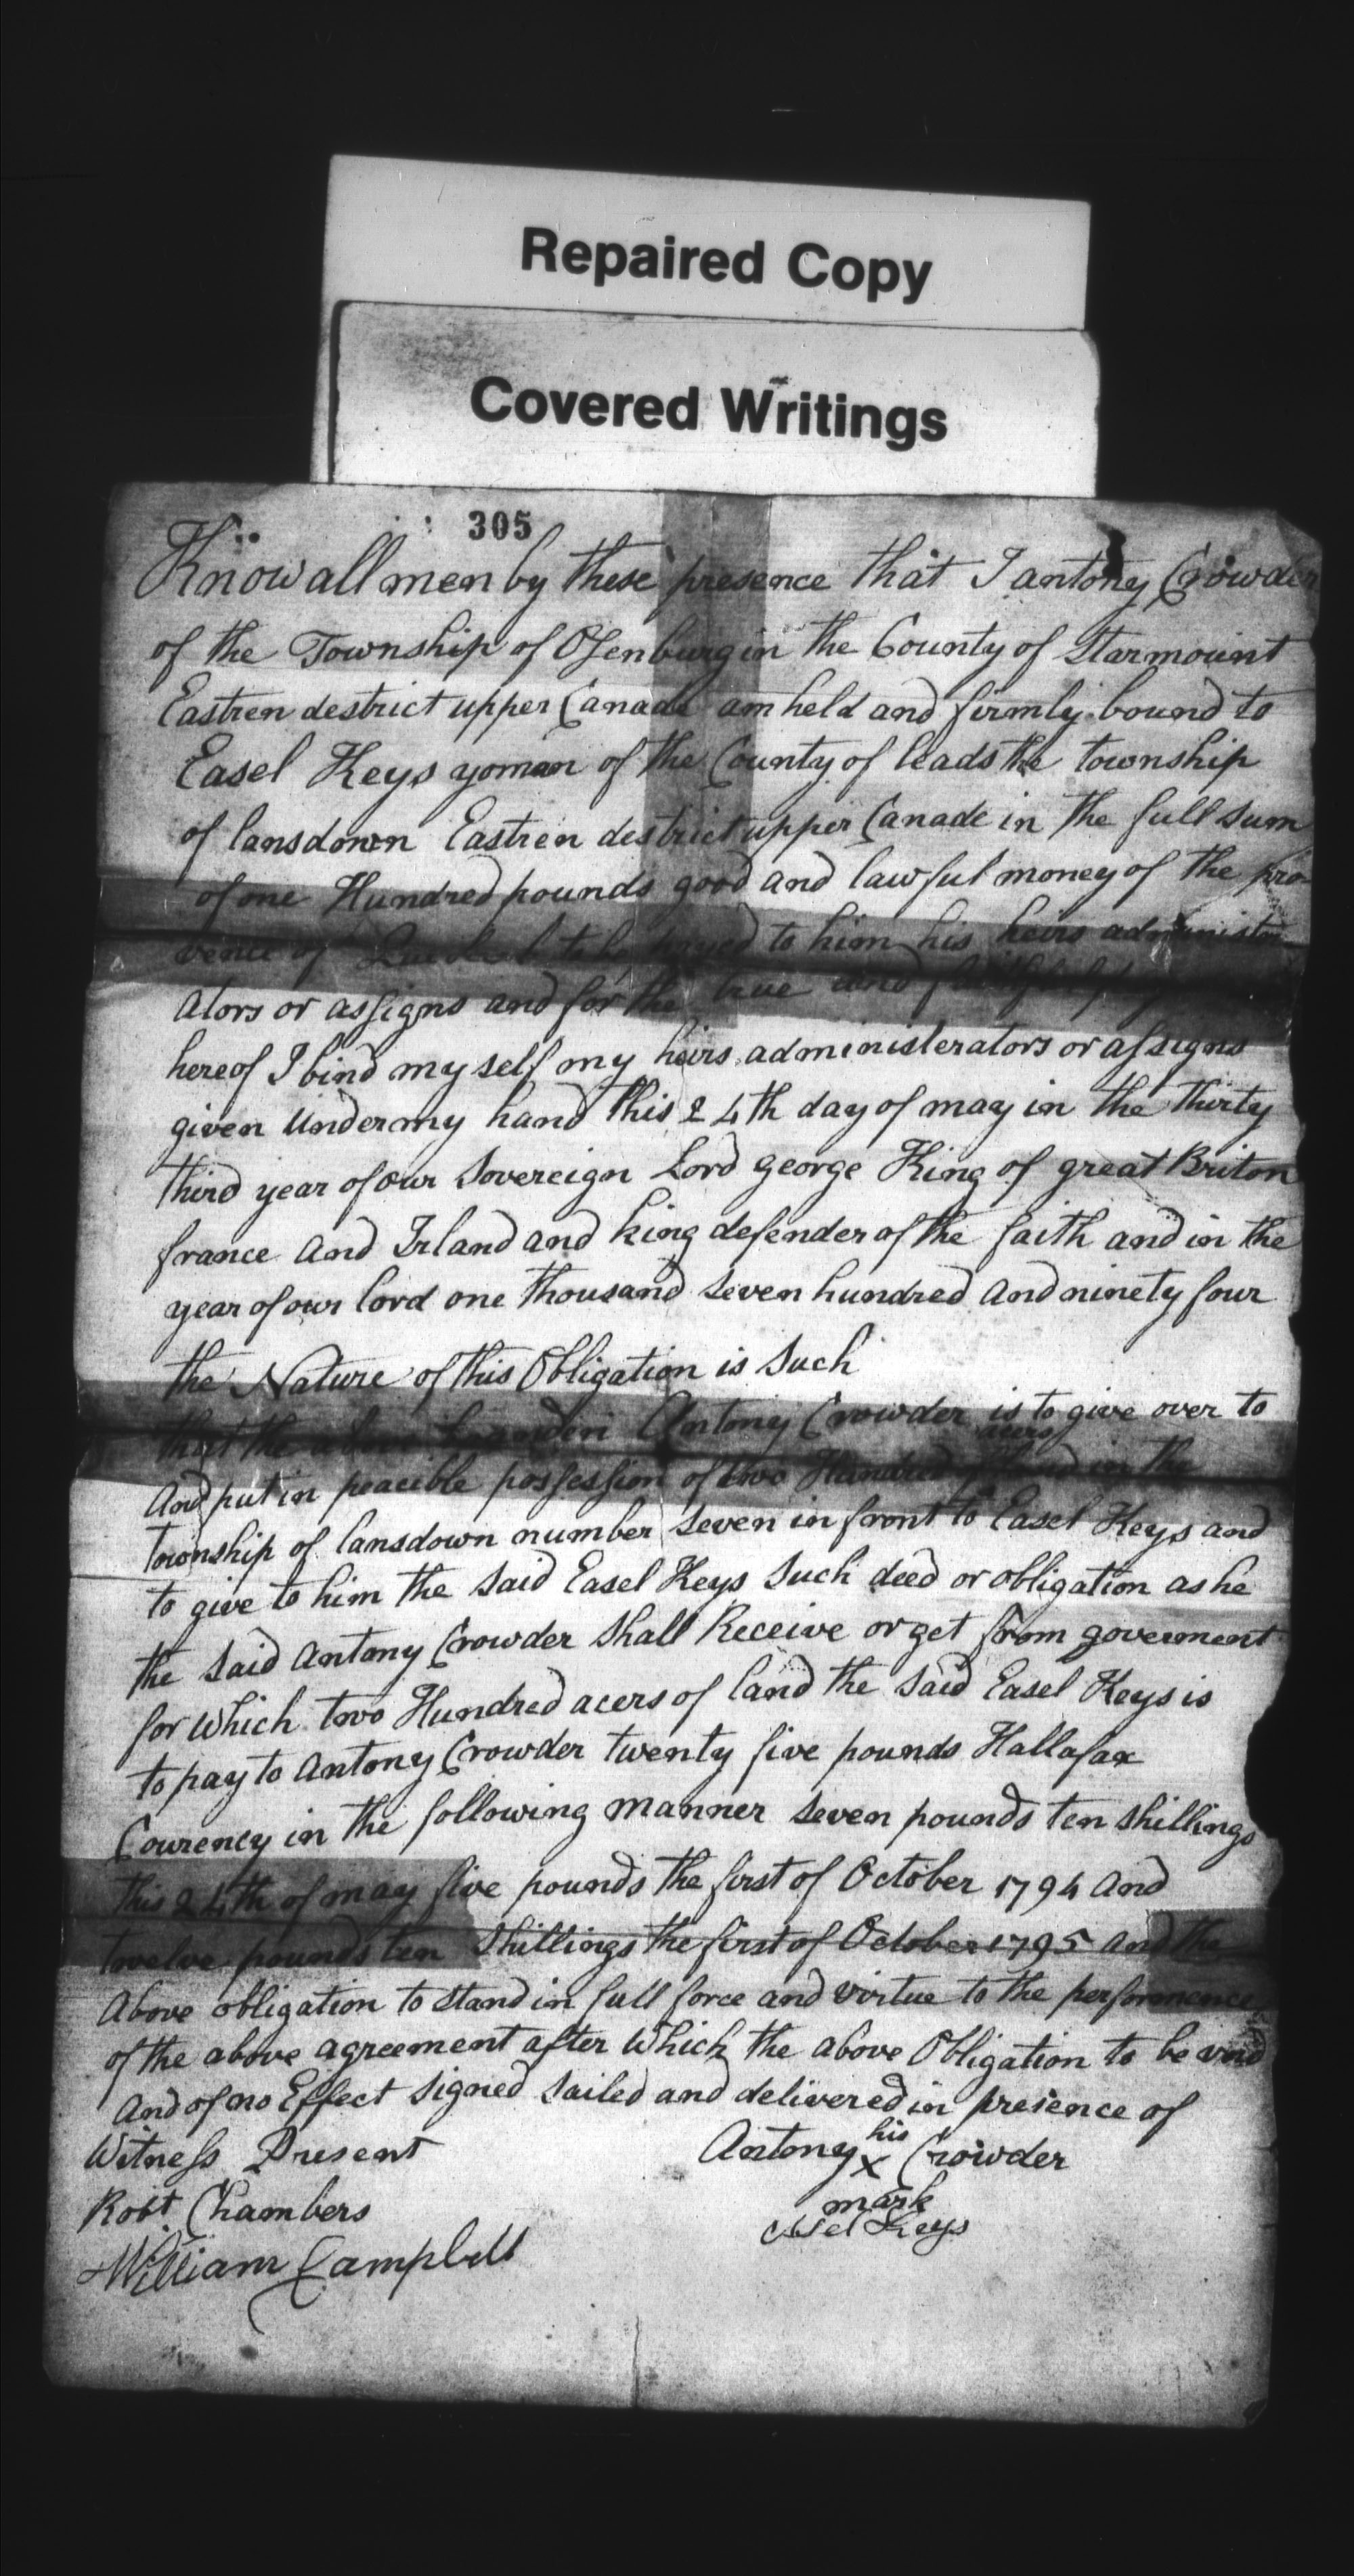 Repaired Copy
Covered Writings
305
Know all men by these presence that I antony Crowder
of the Township of Osenburg in the County of Starmount
Eastren destrict upper Canade am held and firmly bound to
Easel Keys yoman of the County of leads the township
of lansdown Eastren destrict upper Canade in the full sum
of one Hundred pounds good and lawful money of the pro-
vence of to be payed to him his heirs administr
ators or assigns and for the true and
hereof I bind my self my heirs administerators or assigns
given under my hand this 24th day of may in the thirty
third year of our Sovereign Lord george King of great Briton
france and Irland and king defender of the faith and in the
year of our lord one thousand seven hundred and ninety four
the Nature of this Obligation is Such
that the above Antony Crowder is to give over to
acers
And put in peacible possession of two Hundred of land in the
township of lansdown number seven in front to Easel Keys and
to give to him the said Easel Keys Such deed or obligation as he
the said antony Crowder shall Receive or get from goverment
for which two Hundred acers of land the said Easel Keys is
to pay to antony Crowder twenty five pounds Hallafax
Courency in the following manner seven pounds ten shillings
this 24th of may five pounds the first of October 1794 and
twelve pounds ten shillings the first of October 1795 and the
Above obligation to stand in full force and virtue to the performence
of the above agreement after which the above Obligation to be void
And of no Effect signed sailed and delivered in presence of
Witness Present
Robt Chambers
William Campbell
his
Antony x Crowder
mark
Asel Keys